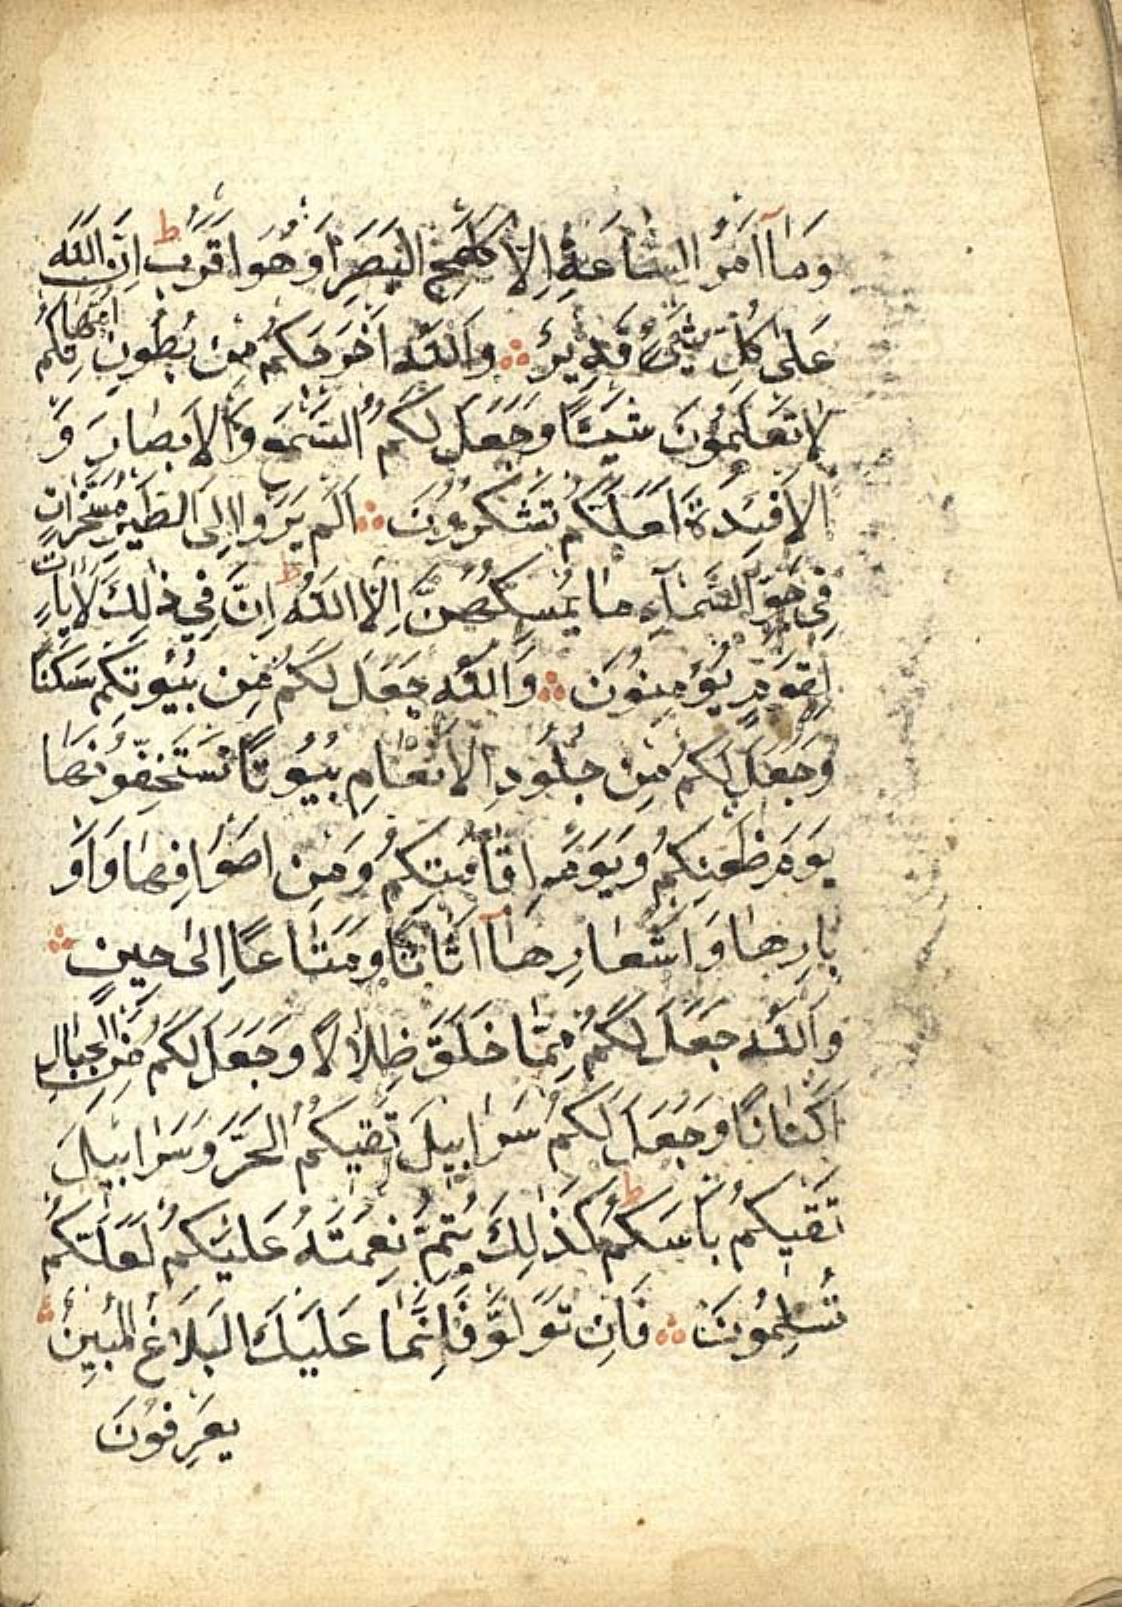 وَمَآ اَمْرُ السَّاعَةِ اِلَّا كَلَمْحِ الْبَصَرِ اَوْ هُوَ اَقْرَبُ ط اِنَّ اللّٰهَ
عَلٰى كُلِّ شَىْءٍ قَدِيرٌ ۞ وَاللّٰهُ اَخْرَجَكُمْ مِنْ بُطُونِ اُمَّهَاتِكُمْ
لَا تَعْلَمُونَ شَيْئًا وَجَعَلَ لَكُمُ السَّمْعَ وَالْاَبْصَارَ وَ
الْاَفْئِدَةَ لَعَلَّكُمْ تَشْكُرُونَ ۞ اَلَمْ يَرَوْا اِلَى الطَّيْرِ مُسَخَّرَاتٍ
فِى جَوِّ السَّمَآءِ مَا يُمْسِكُهُنَّ اِلَّا اللّٰهُ ط اِنَّ فِى ذٰلِكَ لَاٰيَاتٍ
لِقَوْمٍ يُؤْمِنُونَ ۞ وَاللّٰهُ جَعَلَ لَكُمْ مِنْ بُيُوتِكُمْ سَكَنًا
وَجَعَلَ لَكُمْ مِنْ جُلُودِ الْاَنْعَامِ بُيُوتًا تَسْتَخِفُّونَهَا
يَوْمَ ظَعْنِكُمْ وَيَوْمَ اِقَامَتِكُمْ وَمِنْ اَصْوَافِهَا وَاَوْ
بَارِهَا وَاَشْعَارِهَآ اَثَاثًا وَمَتَاعًا اِلٰى حِينٍ ۞
وَاللّٰهُ جَعَلَ لَكُمْ مِمَّا خَلَقَ ظِلَالًا وَجَعَلَ لَكُمْ مِنَ الْجِبَالِ
اَكْنَانًا وَجَعَلَ لَكُمْ سَرَابِيلَ تَقِيكُمُ الْحَرَّ وَسَرَابِيلَ
تَقِيكُمْ بَاْسَكُمْ ط كَذٰلِكَ يُتِمُّ نِعْمَتَهُ عَلَيْكُمْ لَعَلَّكُمْ
تُسْلِمُونَ ۞ فَاِنْ تَوَلَّوْا فَاِنَّمَا عَلَيْكَ الْبَلَاغُ الْمُبِينُ ۞
يَعْرِفُونَ